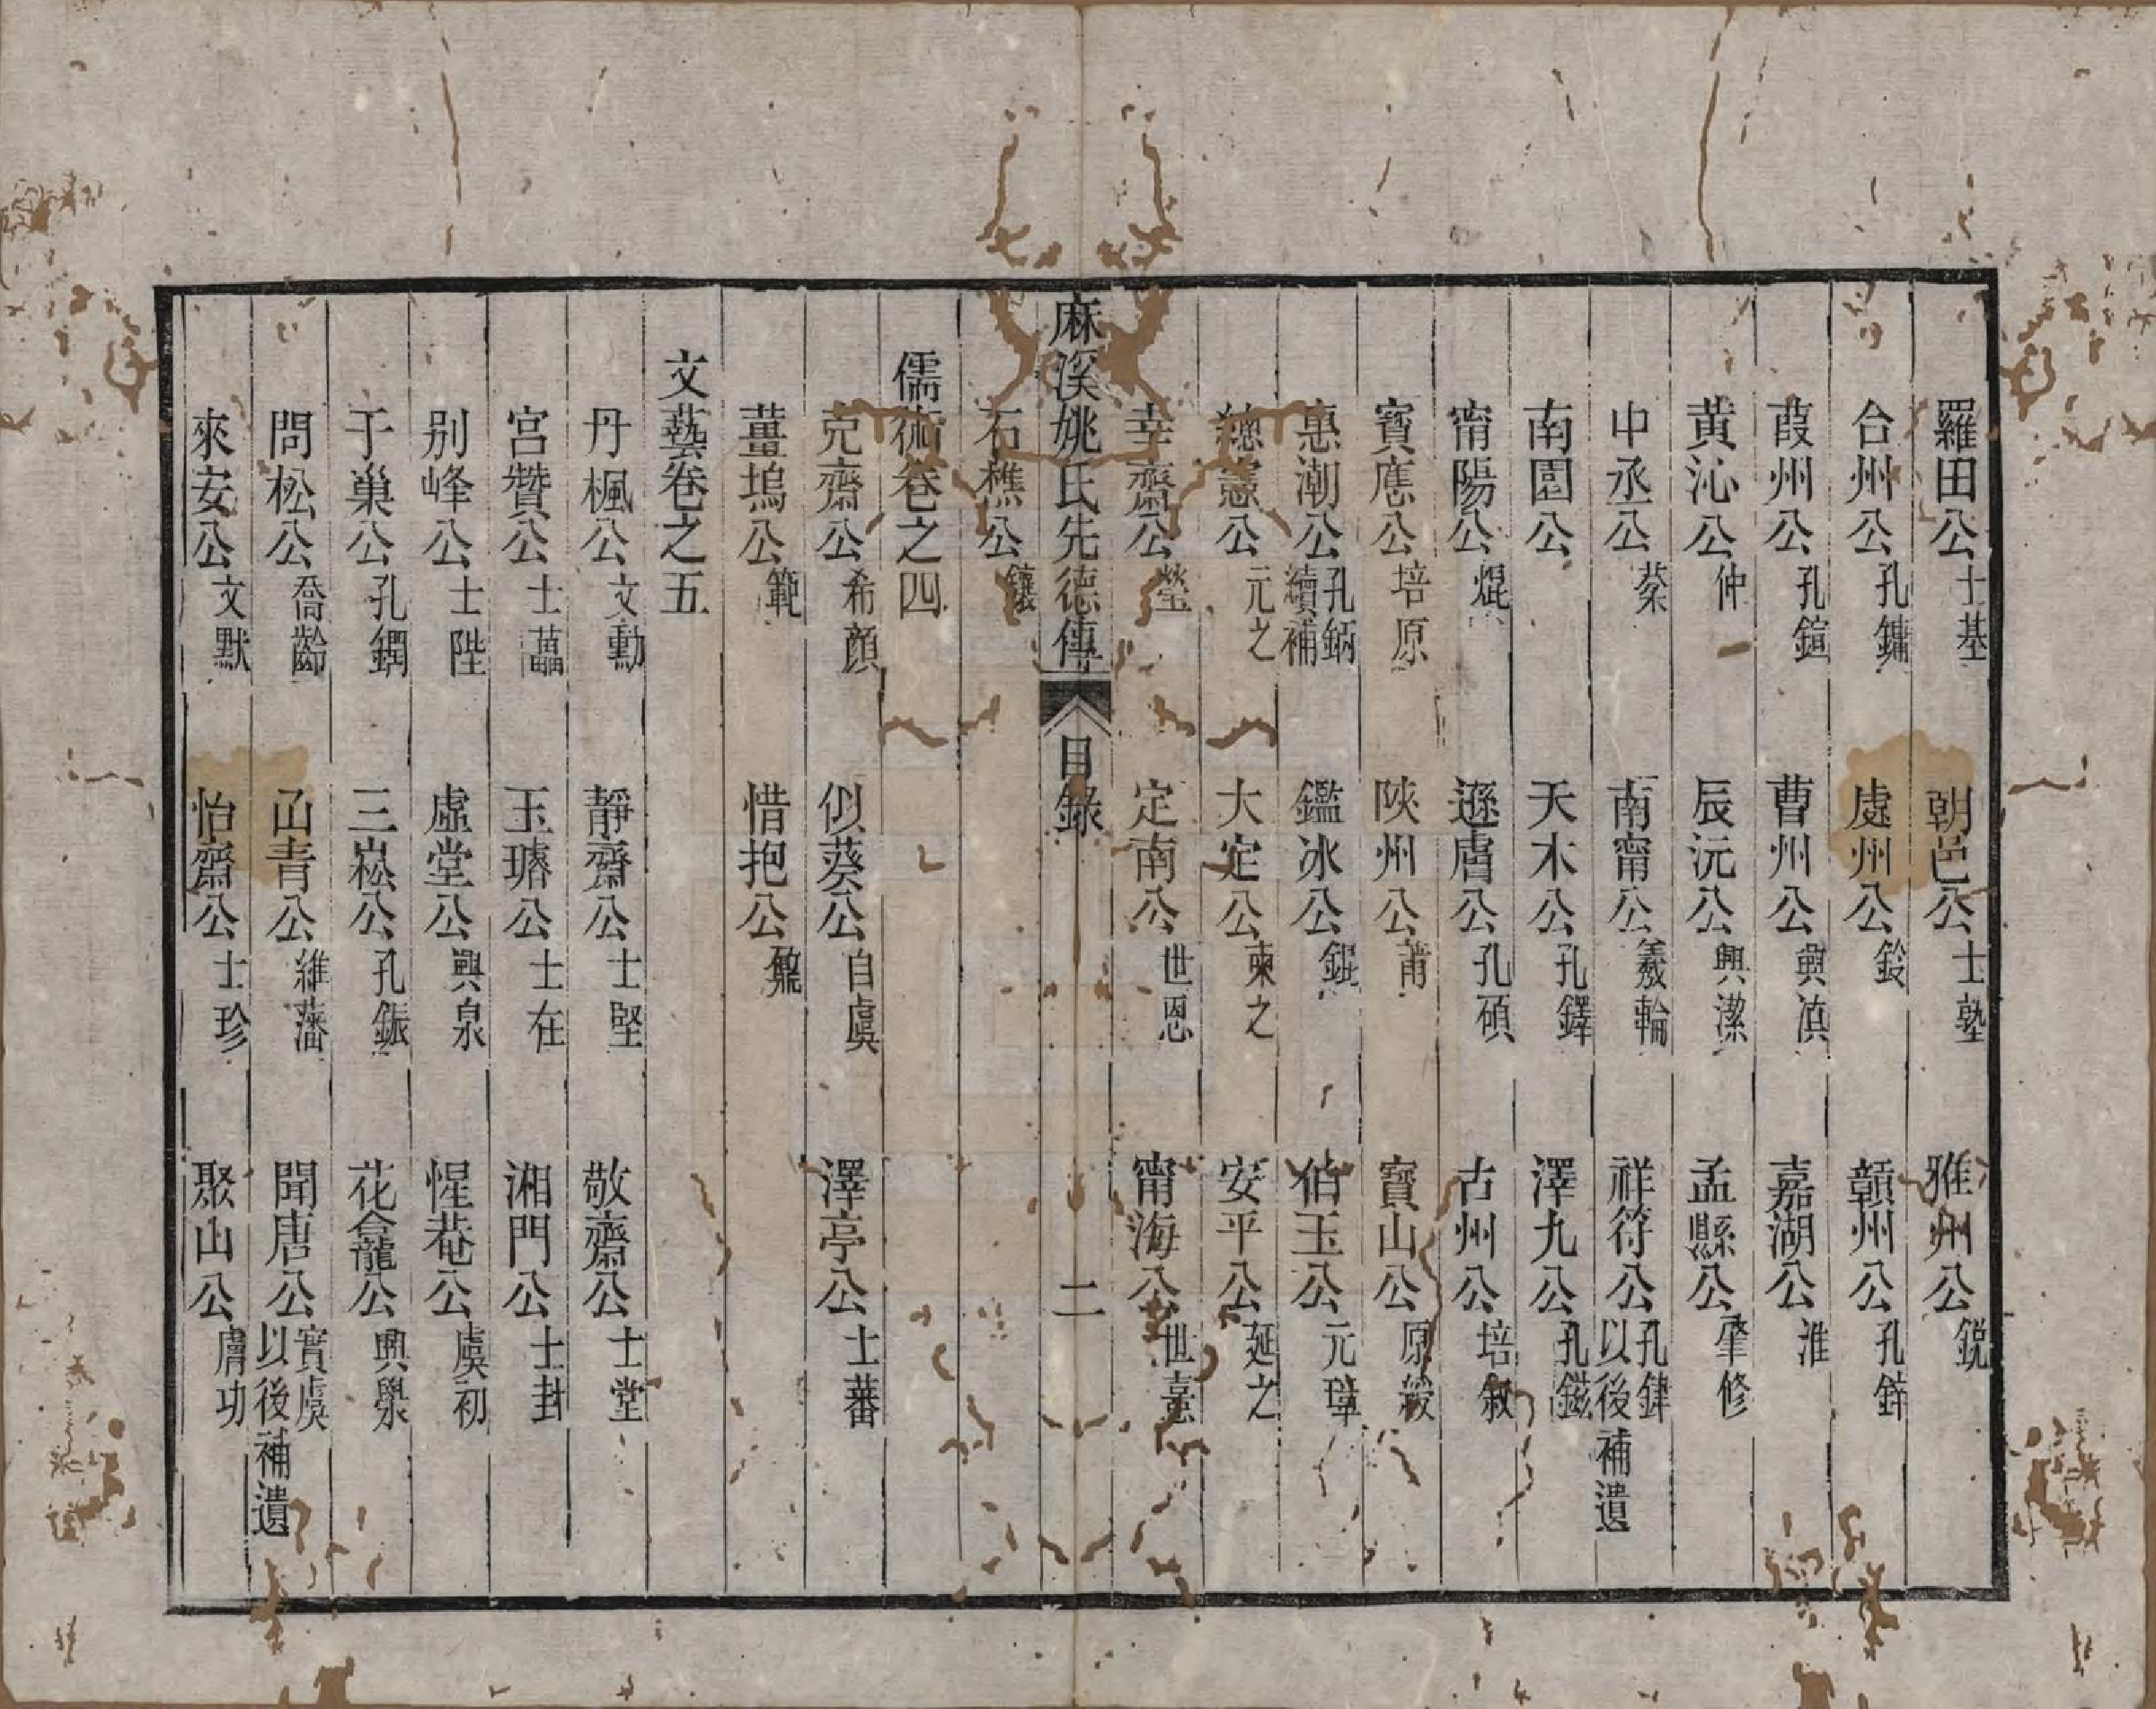 羅田公士基 朝邑公士塾 雅州公銳
台州公孔鏞 處州公鋑 贛州公孔鉡
葭州公孔鍹 曹州公興滇 嘉湖公淮
黃沁公仲 辰沅公興潔 孟縣公肇修
中丞公棻 南甯公羲輪 祥符公孔銉以後補遺
南園公 天木公孔鐸 澤九公孔鎡
甯陽公焜 遜膚公孔碩 古州公培敘
寶應公培原 陝州公莆 寶山公原綬
惠潮公孔鈵續補 鑑冰公錕 伯玉公元瑋
總憲公元之 大定公柬之 安平公延之
幸齋公瑩 定南公世恩 甯海公世憙
麻溪姚氏先德傳 目錄 二
石樵公鑲
儒術卷之四
克齋公希顏 似葵公自虞 澤亭公士蕃
薑塢公範 惜抱公鼐
文藝卷之五
丹楓公文勳 靜齋公士堅 敬齋公士堂
宮贊公士藟 玉璿公士在 湘門公士封
別峰公士陛 虛堂公興泉 惺菴公虞初
于巢公孔鐧 三崧公孔鋠 花龕公興㶅
問松公喬齡 函青公維藩 聞唐公實虞以後補遺
來安公文默 怡齋公士珍 聚山公膚功